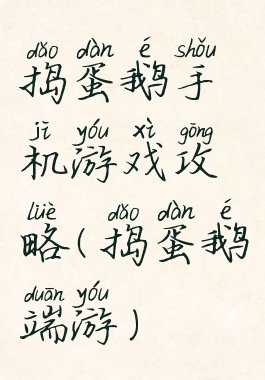 dǎo dàn é shǒu
捣蛋鹅手
jī yóu xì gōng
机游戏攻
lüè dǎo dàn é
略(捣蛋鹅
duān yóu
端游)